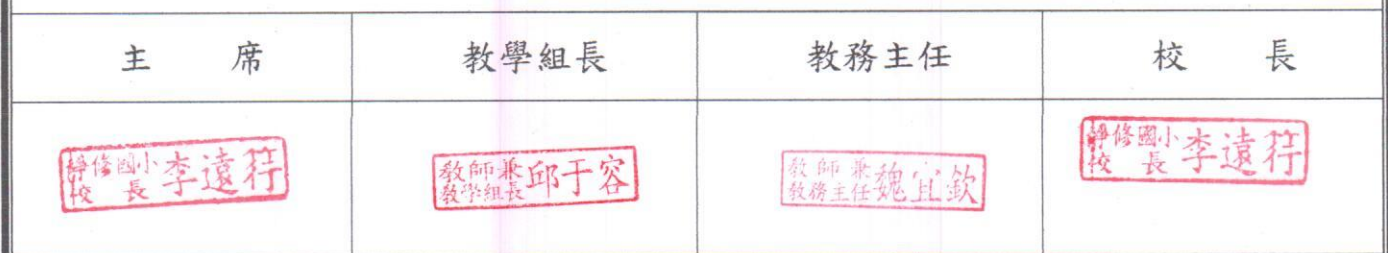 主 席 教學組長 教務主任 校 長
靜修國小 校 長 李遠行
教師兼 教學組長 邱于容
教師兼 教務主任 魏宜欽
靜修國小 校 長 李遠行